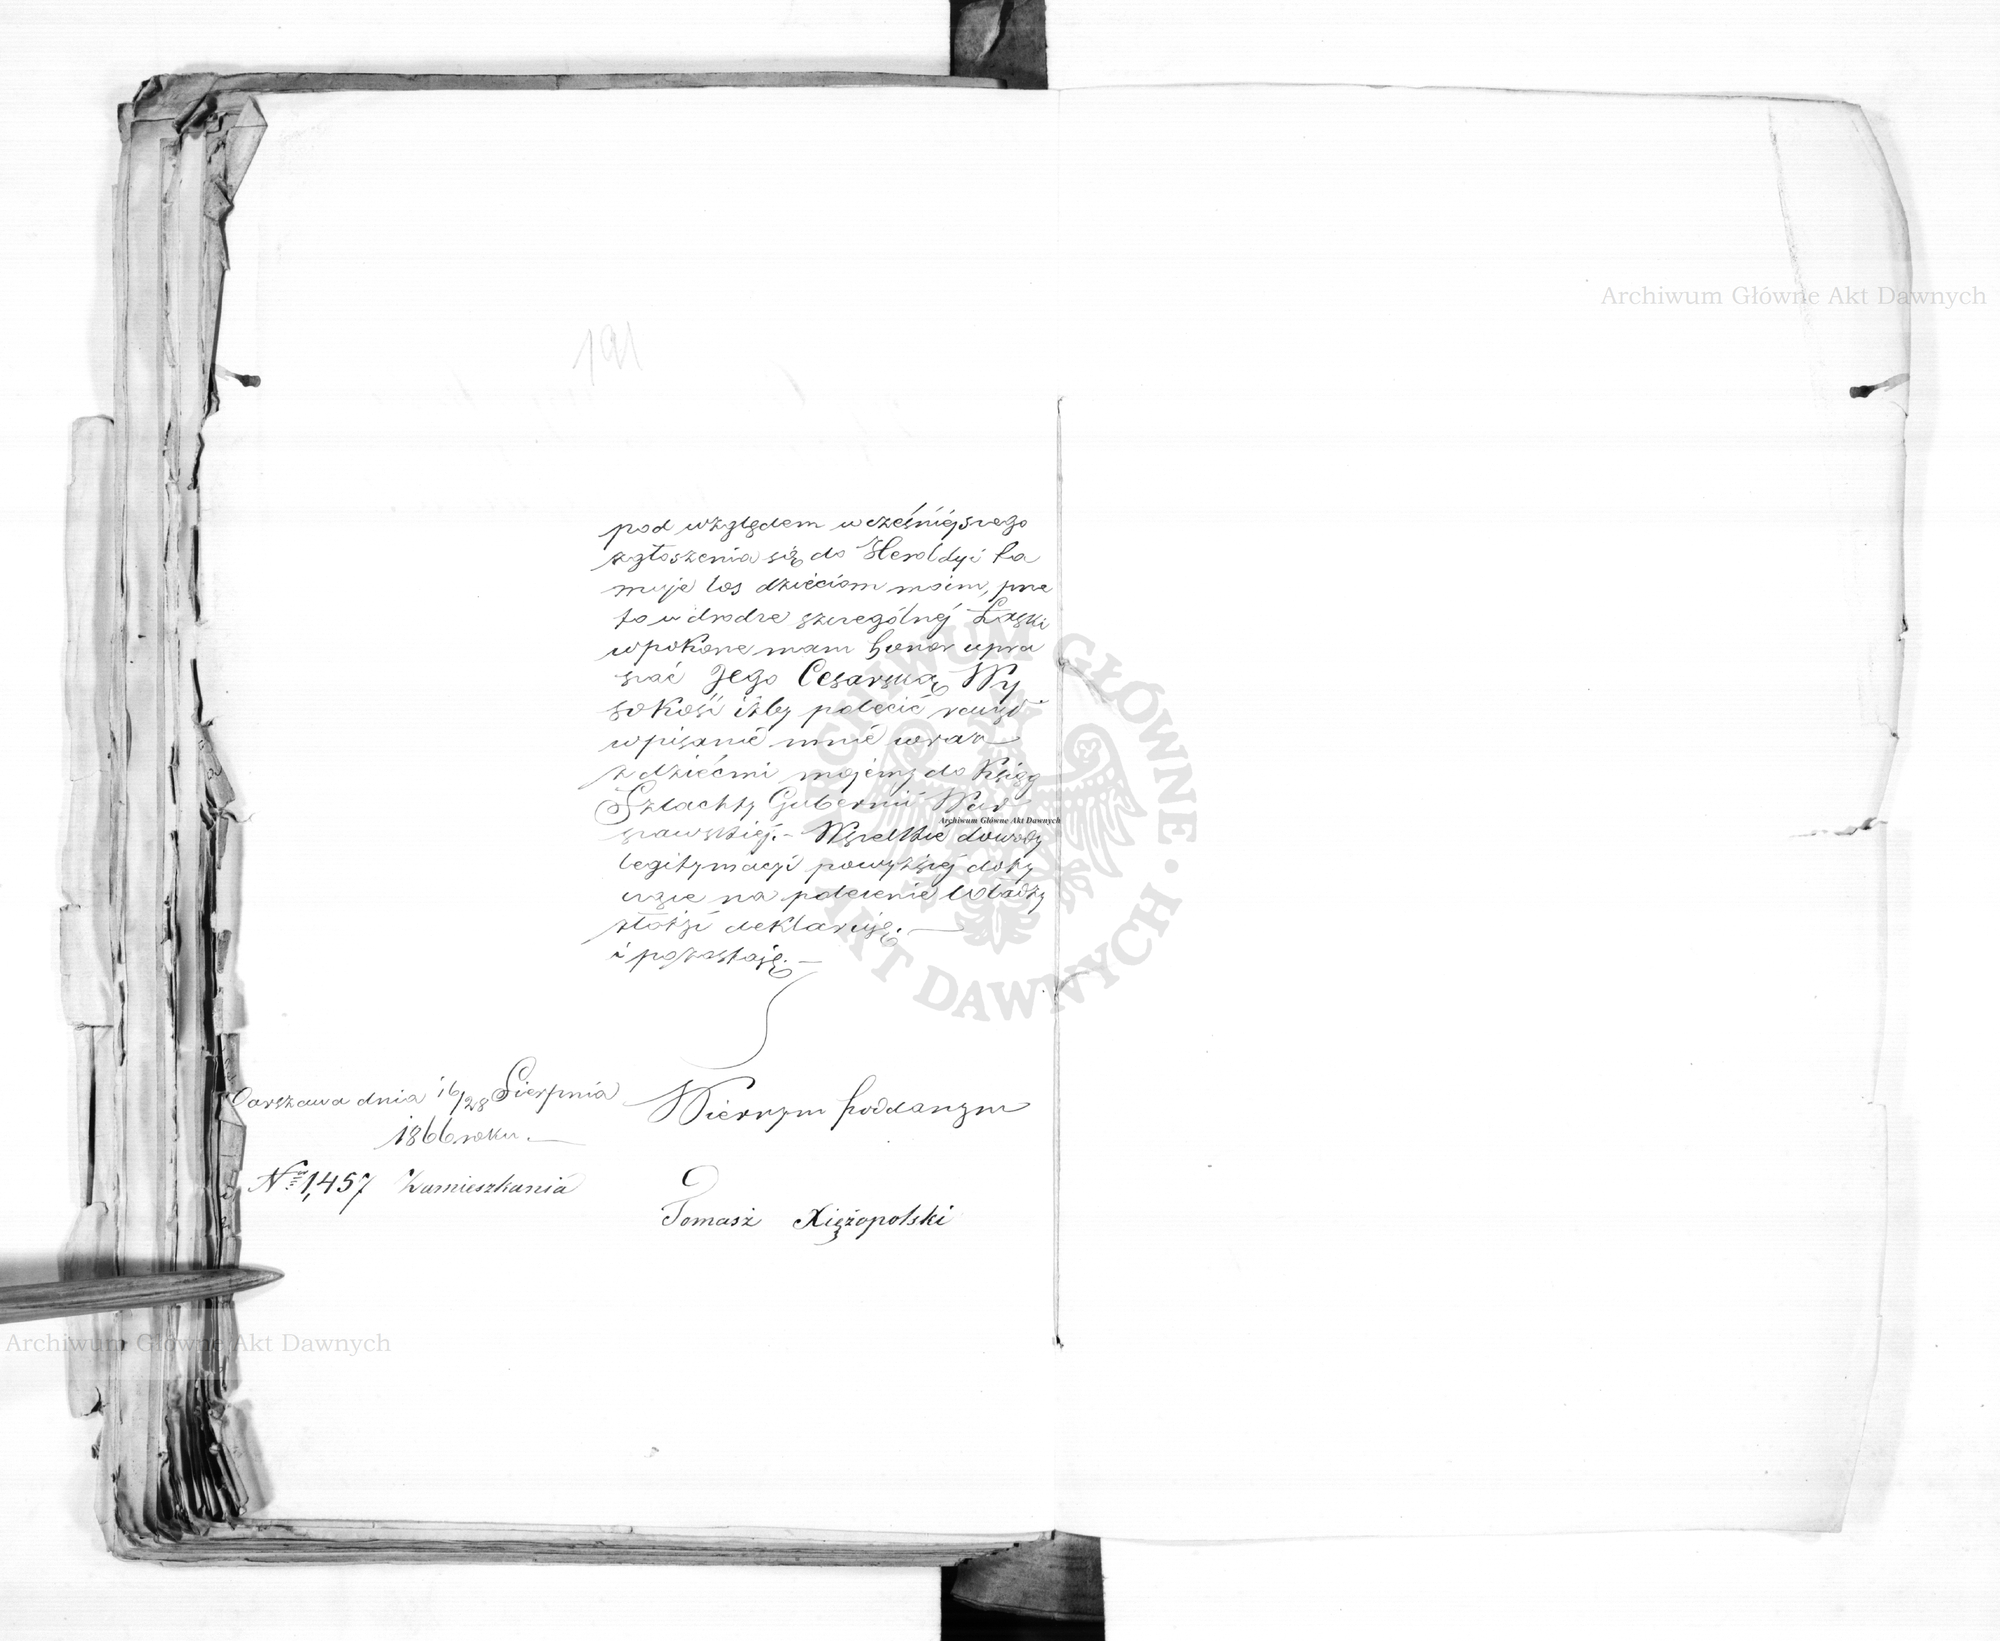 191
pod względem wcześniejszego
zgłoszenia się do Heroldyi ta
muje los dzieciom moim, prze
to w drodze szczególnej Łaski
w pokorze mam honor upra
szać Jego Cesarską Wy
sokość iżby polecić raczył
wpisanie mnie wraz
z dziećmi mojemy do Księgi
Szlachty Gubernii War
szawskiej.- Wszelkie dowody
legitymacyi powyższej doty
czące na polecenie Władzy
złożyć deklaruję. —
i pozostaję. —
Warszawa dnia 16/28 Sierpnia
1866 roku. —
No 1,457 Zamieszkania
Wiernym Poddanym
Tomasz Xiężopolski
Archiwum Główne Akt Dawnych
Archiwum Główne Akt Dawnych
Archiwum Główne Akt Dawnych
ARCHIWUM GŁÓWNE · AKT DAWNYCH ·